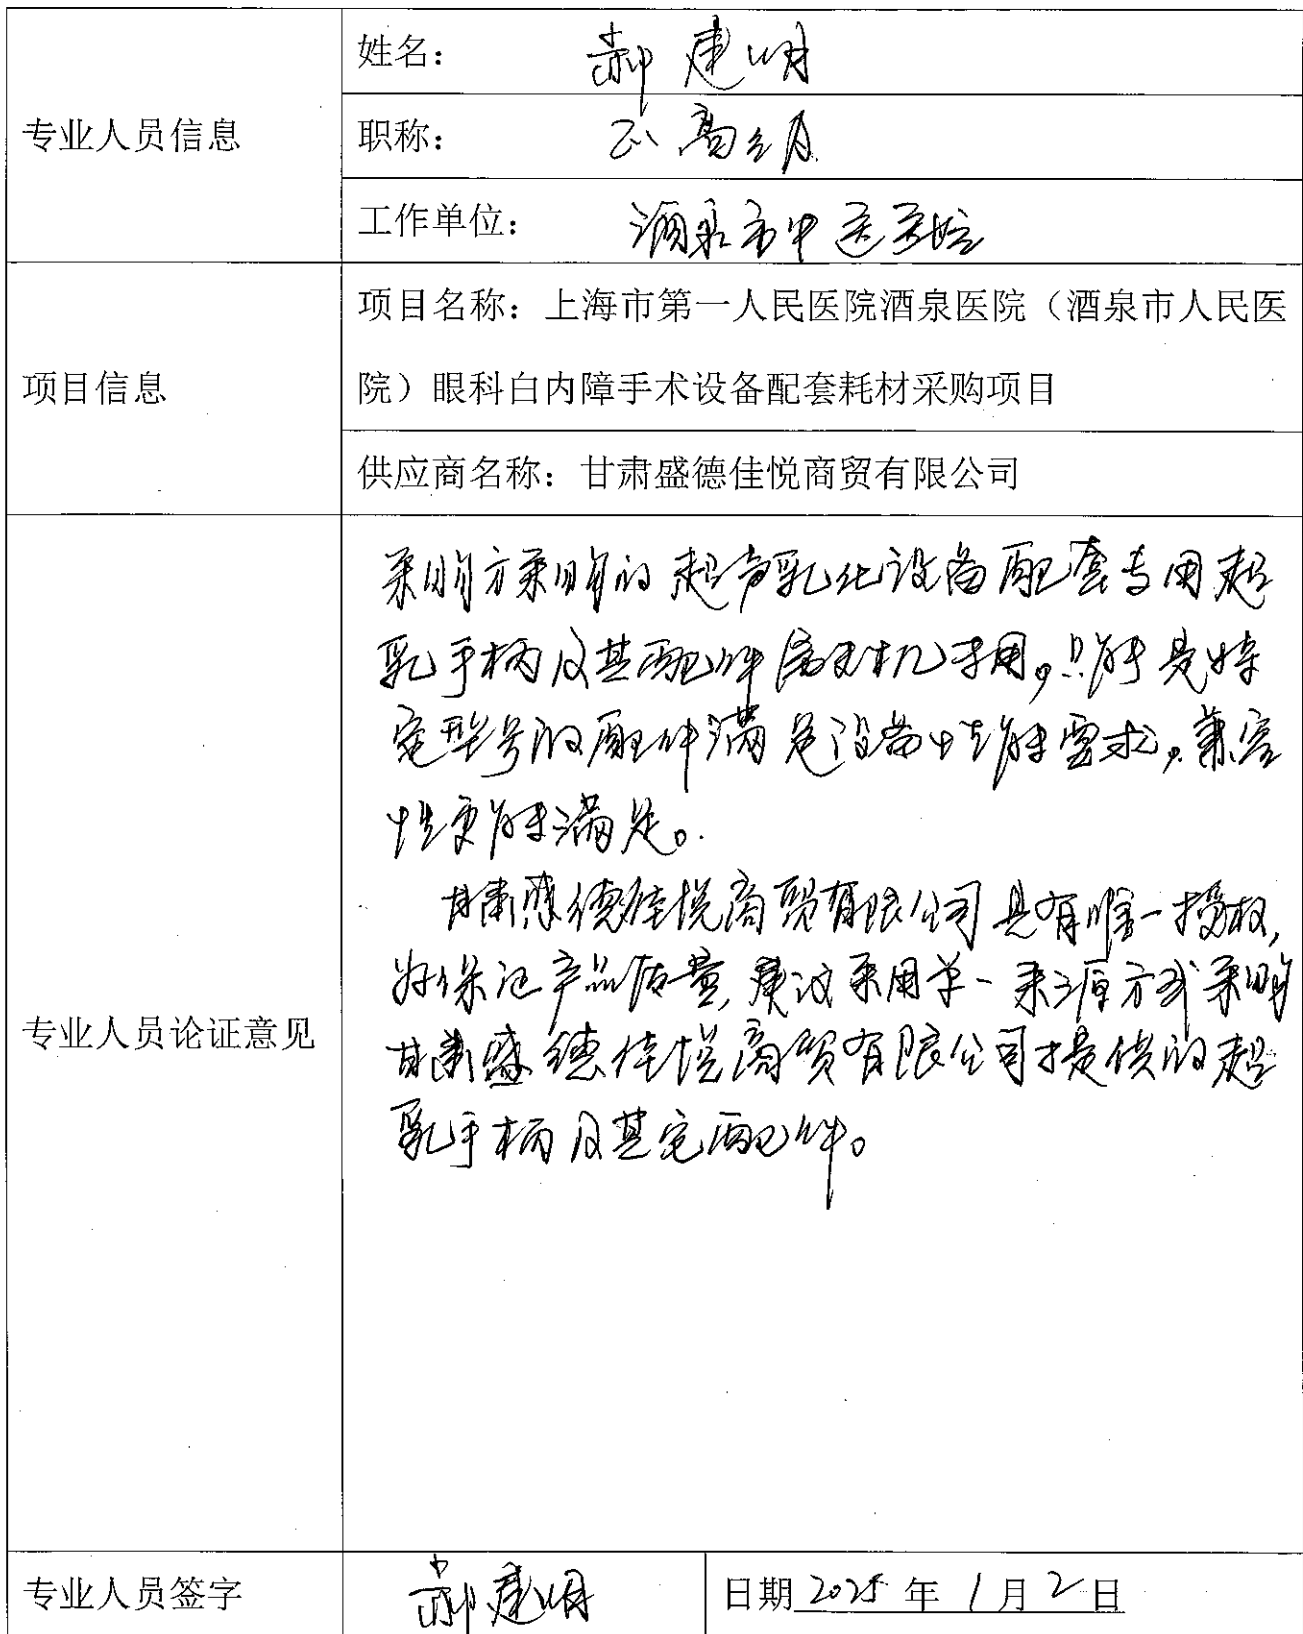 专业人员信息
姓名：郝建明
职称：正高
工作单位：酒泉市中医医院
项目信息
项目名称：上海市第一人民医院酒泉医院（酒泉市人民医
院）眼科白内障手术设备配套耗材采购项目
供应商名称：甘肃盛德佳悦商贸有限公司
专业人员论证意见
采购方采购的超声乳化设备配套专用超
乳手柄及其配件需专机专用，只能是特
定型号的配件满足设备性能要求，兼容
性更能满足。
甘肃盛德佳悦商贸有限公司具有唯一授权，
好保证产品质量，建议采用单一来源方式采购
甘肃盛德佳悦商贸有限公司提供的超
乳手柄及其它配件。
专业人员签字
郝建明
日期 2025 年 1 月 2 日